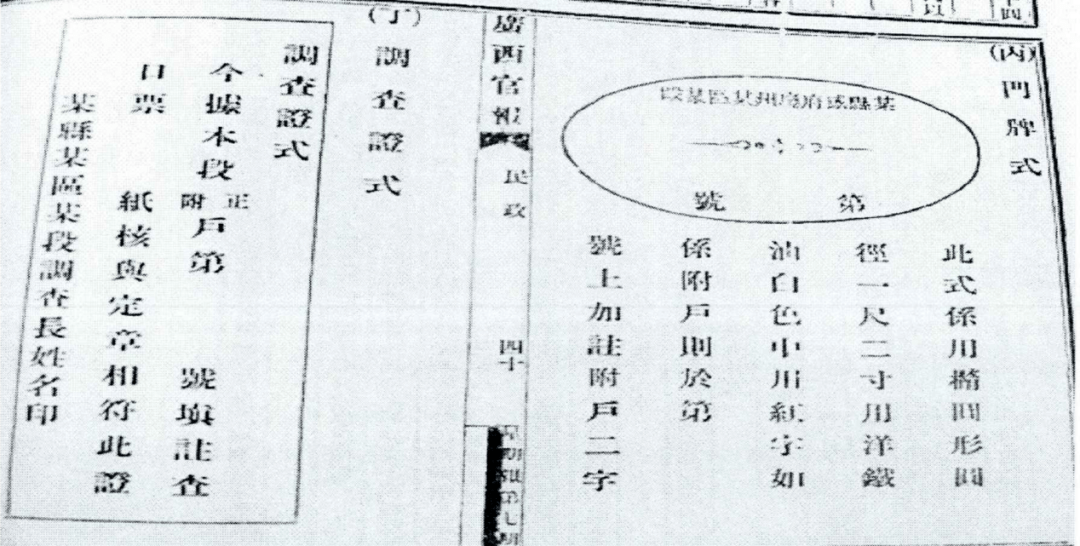 (丙)門牌式
某縣或府廳州某區某段
第　號
此式係用橢圓形圓
徑一尺二寸用洋鐵
油白色中用紅字如
係附戶則於第
號上加註附戶二字
廣西官報　民政　四十
星期報第七期
(丁)　調查證式
調查證式
今據本段正附戶第　號填註查
口票　紙核與定章相符此證
某縣某區某段調查長姓名印